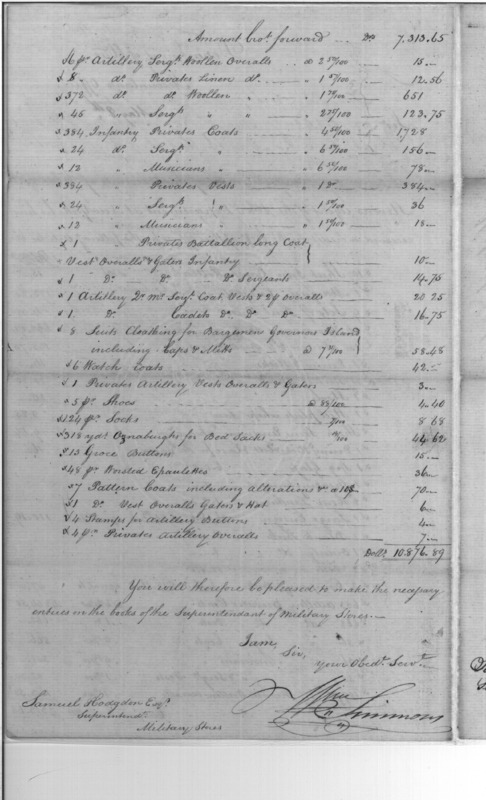 Amount bro.t forward ... Do 7.313.65
6 pr Artillery Sergts Woollen Overalls @ 2 50/100 15 —
8 do. Privates Linen do. 1 57/100 12.56
372 do. do. Woollen " 1 75/100 651
45 " Sergts " " 2 75/100 123.75
384 Infantry Privates Coats 4 50/100 1728
24 do. Sergts " 6 50/100 156 —
12 " Musicians " 6 50/100 78 —
384 " Privates Vests 1 384 —
24 " Sergts " 1 50/100 36
12 " Musicians " 1 50/100 18 —
1 Privates Battallion long Coat
Vest Overalls & Gaters Infantry 10 —
1 Do. Do. Do. Sergeants 14.75
1 Artillery Do. Sergt. Coat, Vests & 2 pr Overalls 20 25
1 Do. Cadets Do. Do. Do. 16.75
8 Suits Cloathing for Bargemen Governors Island
including Caps & Mitts @ 7 31/100 58.48
6 Watch Coats 42 —
1 Privates Artillery Vests Overalls & Gaters 3 —
5 pr. Shoes @ 88/100 4.40
124 pr. Socks 7/100 8 68
318 yds. Oznaburghs for Bed Sacks 44 62
15 Groce Buttons 15 —
48 pr. Worsted Epaulettes 36 —
7 Pattern Coats including alterations & a 10$ 70 —
1 Do. Vest Overalls Gaters & Hat 6 —
4 Stamps for Artillery Buttons 4 —
4 pr. Privates Artillery Overalls 7 —
Dolls. 10.876.89
You will therefore be pleased to make the necessary
entries in the books of the Superintendant of Military Stores —
I am,
Sir,
your Obedt. Servt.
Wm Simmons
Samuel Hodgdon Esqr.
Superintendt.
Military Stores